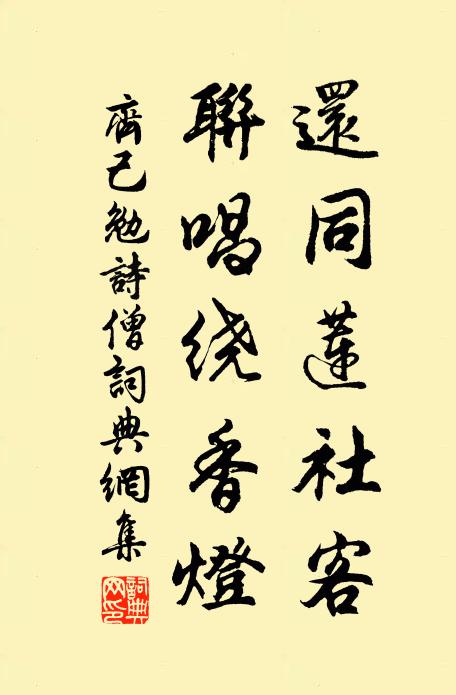 還同蓮社客
聯唱绕香燈
齊己勉詩僧詞典網集
詞典网印